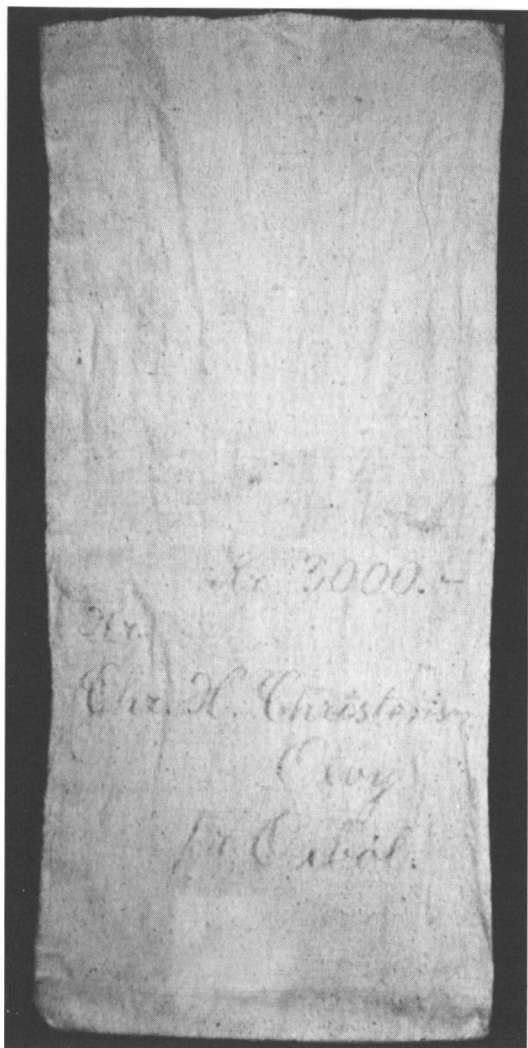 Kr. 3000.-
Hr.
Chr. H. Christensen
Oxby
pr. Oxböl.